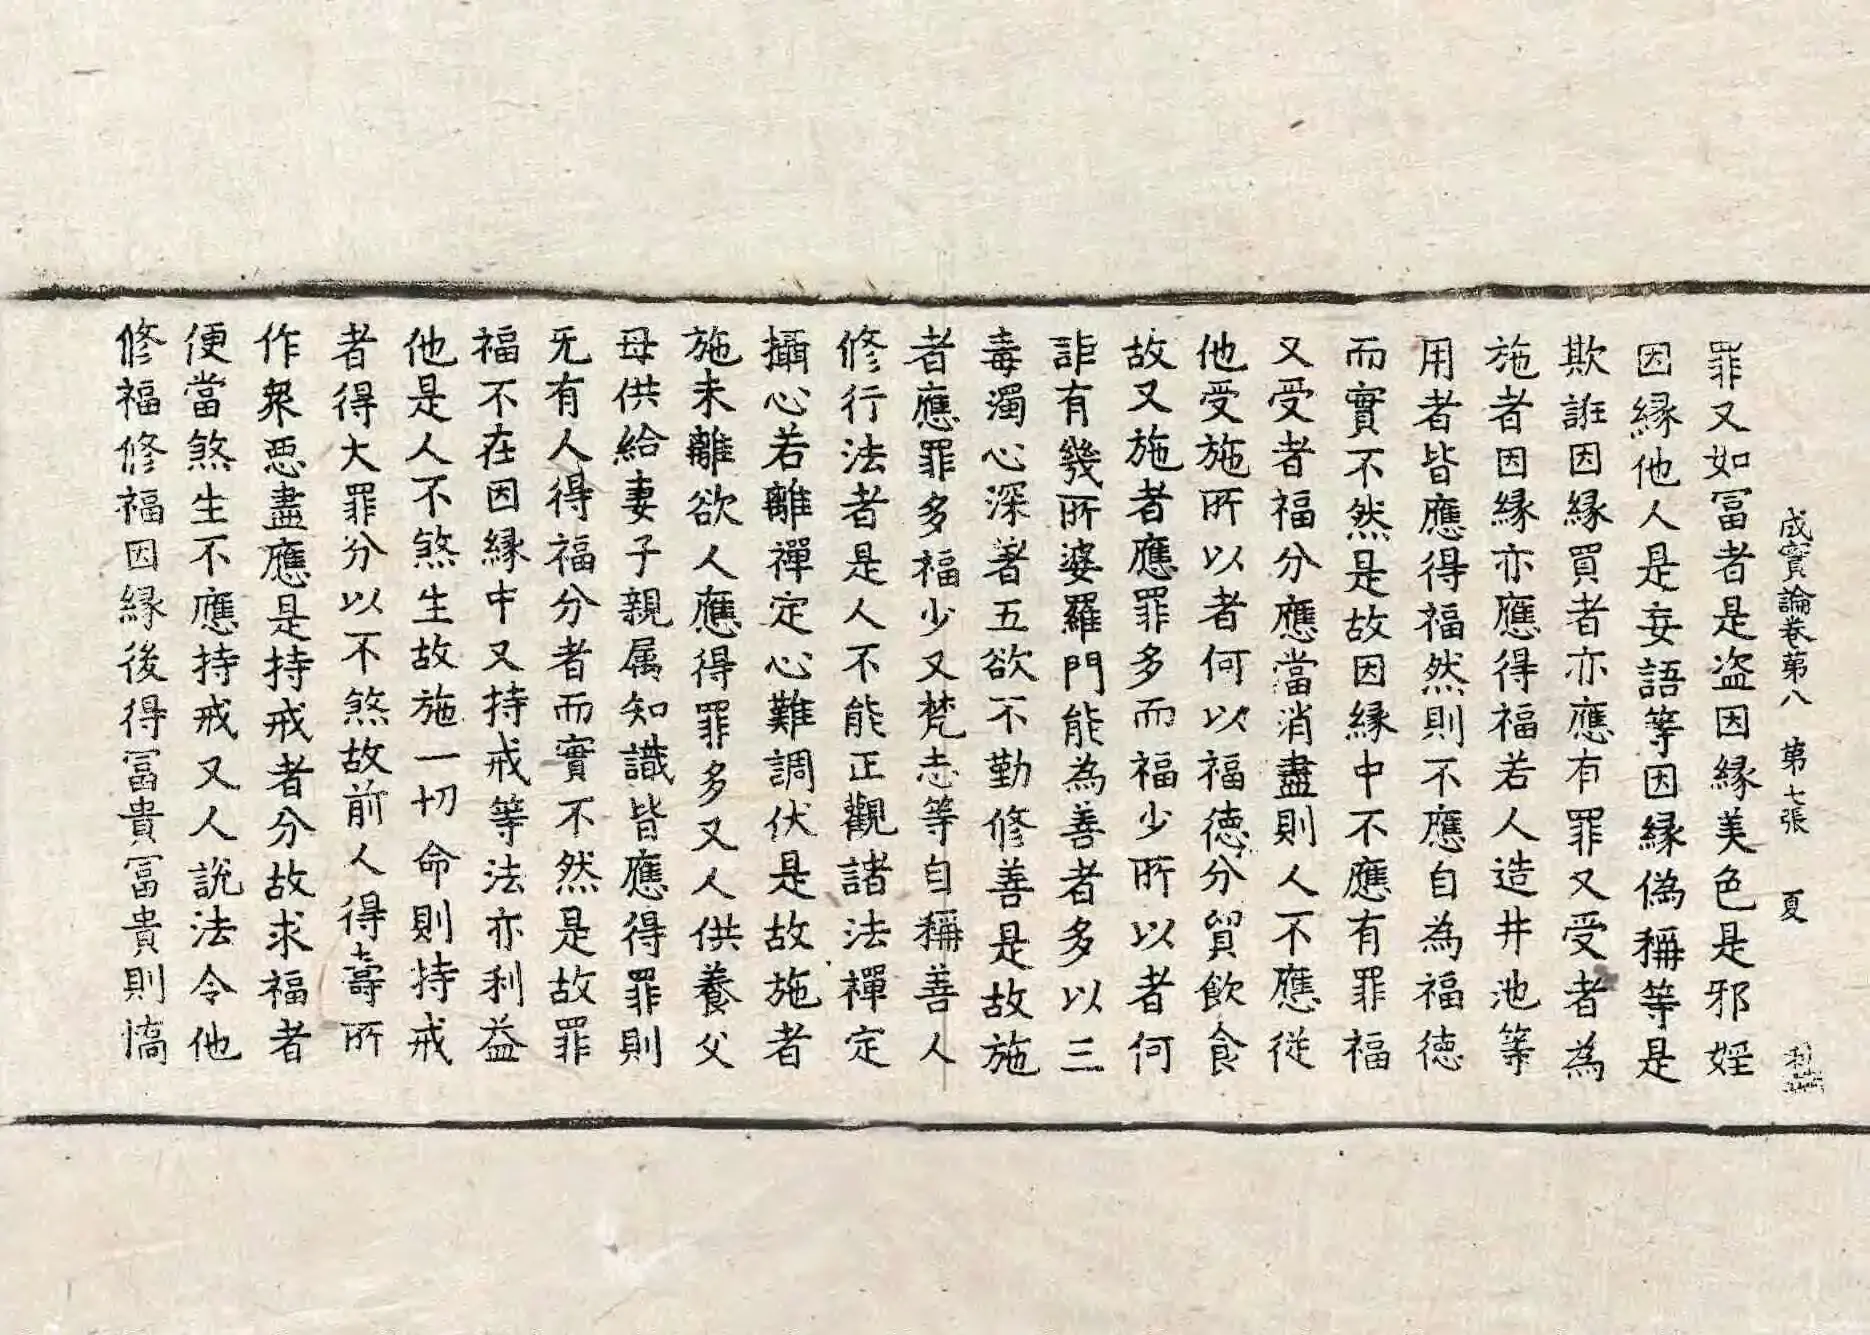 成實論卷第八　第七張　夏
罪又如冨者是盗因縁美色是邪婬
因縁他人是妄語等因縁偽稱等是
欺誑因縁買者亦應有罪又受者為
施者因縁亦應得福若人造井池等
用者皆應得福然則不應自為福徳
而實不然是故因縁中不應有罪福
又受者福分應當消盡則人不應従
他受施所以者何以福徳分貿飲食
故又施者應罪多而福少所以者何
詐有幾所婆羅門能為善者多以三
毒濁心深著五欲不勤修善是故施
者應罪多福少又梵志等自稱善人
修行法者是人不能正觀諸法禪定
攝心若離禪定心難調伏是故施者
施未離欲人應得罪多又人供養父
母供給妻子親属知識皆應得罪則
旡有人得福分者而實不然是故罪
福不在因縁中又持戒等法亦利益
他是人不煞生故施一切命則持戒
者得大罪分以不煞故前人得壽所
作衆惡盡應是持戒者分故求福者
便當煞生不應持戒又人說法令他
修福修福因縁後得冨貴冨貴則憍